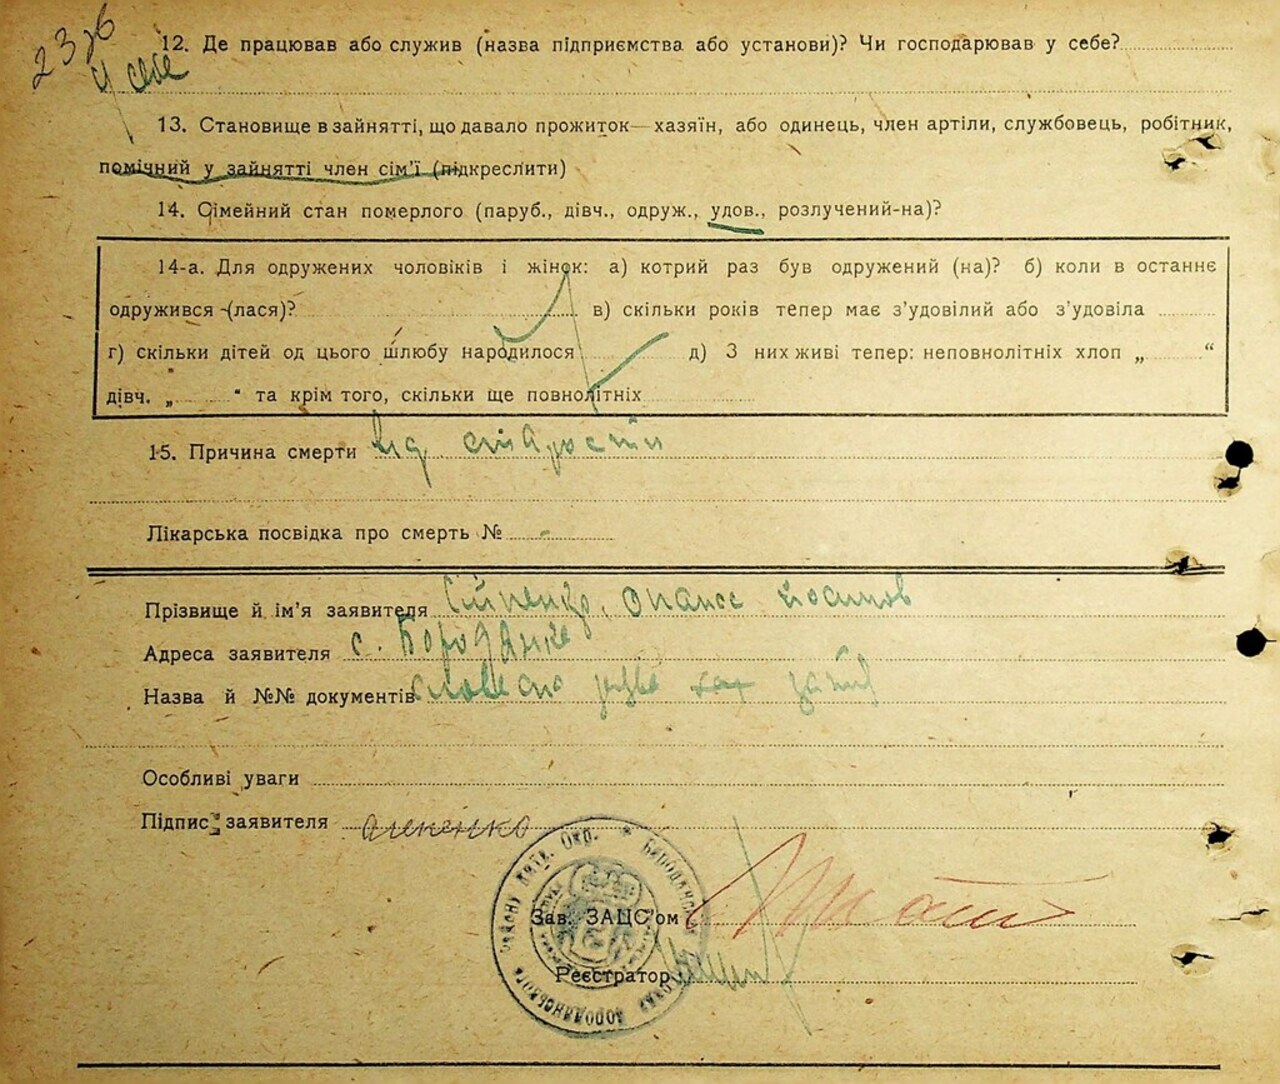 12. Де працював або служив (назва підприємства або установи)? Чи господарював у себе?
у себе
13. Становище в зайнятті, що давало прожиток — хазяїн, або одинець, член артіли, службовець, робітник,
помічний у зайнятті член сім'ї (підкреслити)
14. Сімейний стан померлого (паруб., дівч., одруж., удов., розлучений-на)?
14-а. Для одружених чоловіків і жінок: а) котрий раз був одружений (на)? б) коли в останнє
одружився -(лася)? в) скільки років тепер має з'удовілий або з'удовіла
г) скільки дітей од цього шлюбу народилося д) З них живі тепер: неповнолітніх хлоп „ “
дівч. „ “ та крім того, скільки ще повнолітніх
15. Причина смерти від старости
Лікарська посвідка про смерть № -
Прізвище й ім'я заявителя Опанас
Адреса заявителя с. Бородянка
Назва й №№ документів
Особливі уваги
Підпис заявителя
Зав. ЗАЦС'ом
Реєстратор